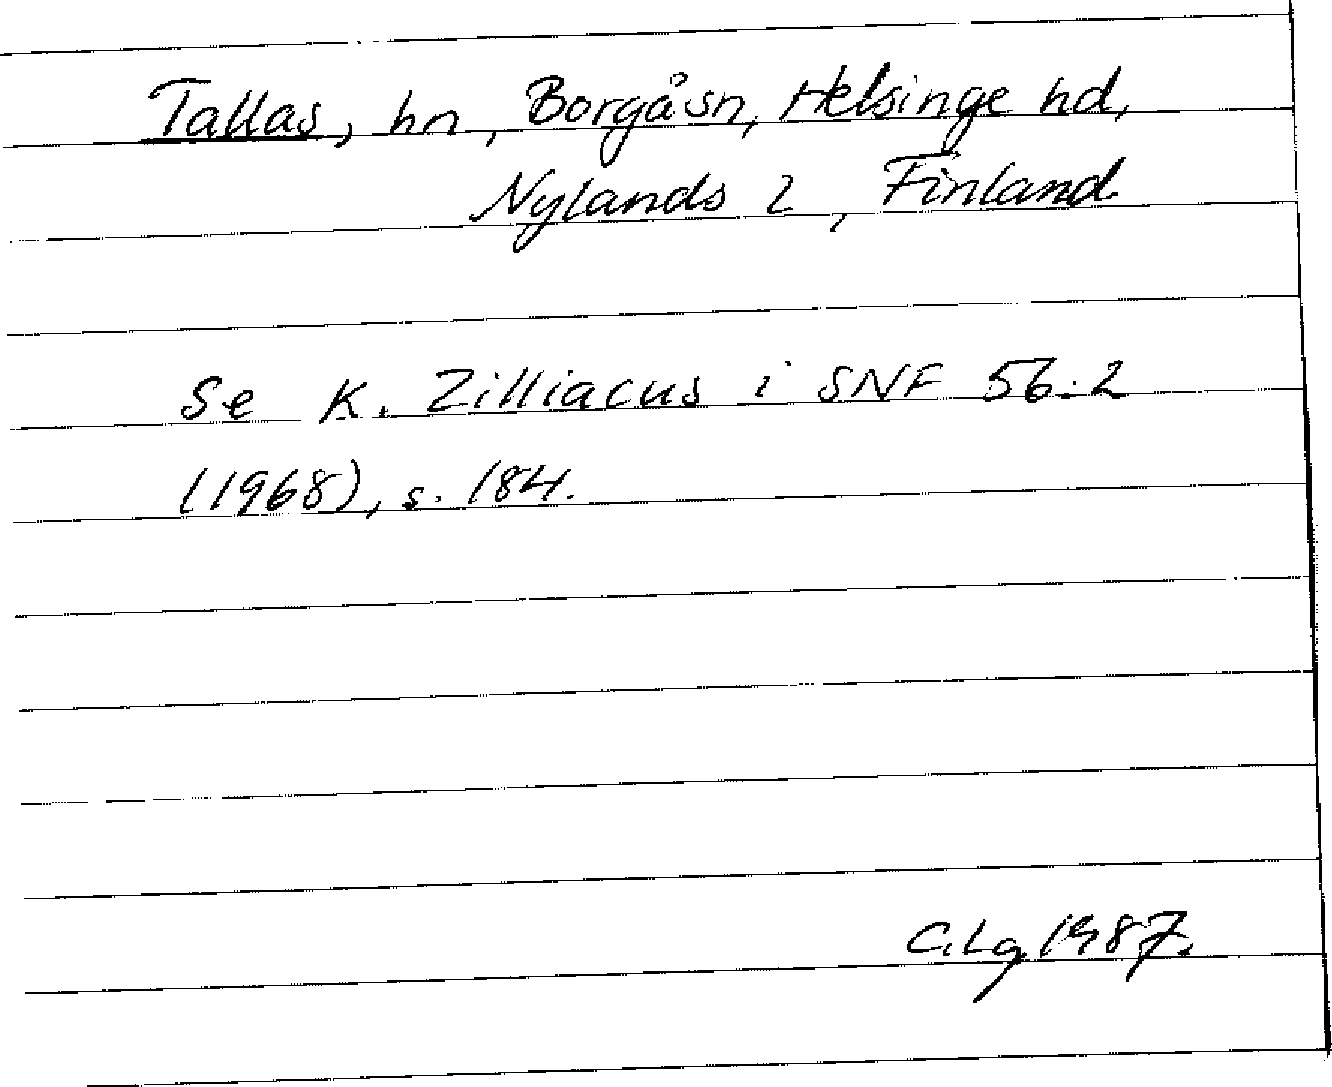 Tallas, hn, Borgå sn, Helsinge hd,
Nylands l, Finland
Se K. Zilliacus i SNF 56:2
(1968), s. 184.
C.Lg 1987.